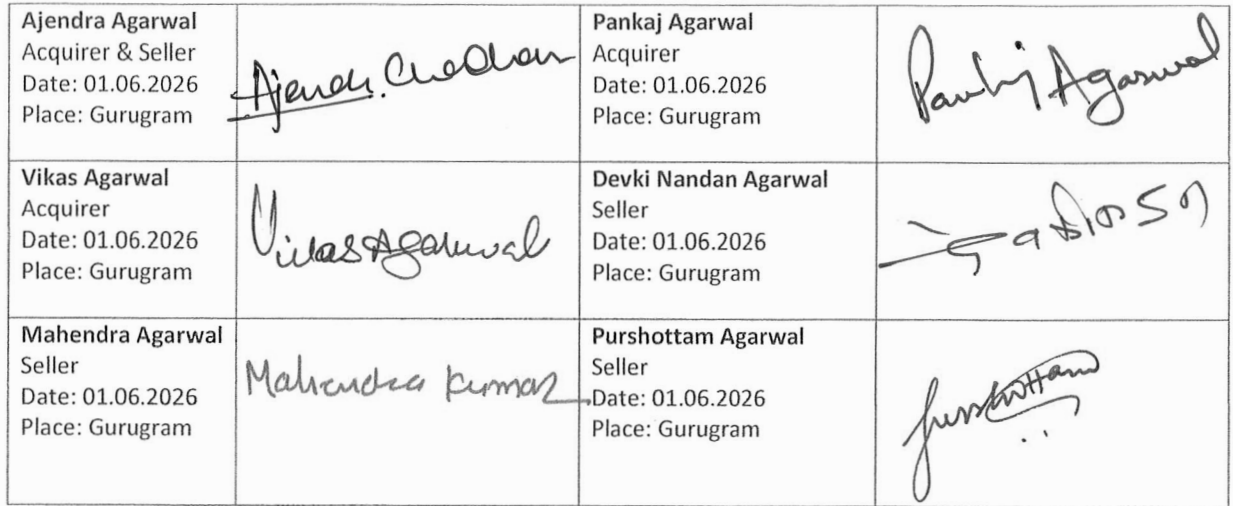 Ajendra Agarwal
Acquirer & Seller
Date: 01.06.2026
Place: Gurugram
Pankaj Agarwal
Acquirer
Date: 01.06.2026
Place: Gurugram
Pankaj Agarwal
Vikas Agarwal
Acquirer
Date: 01.06.2026
Place: Gurugram
Vikas Agarwal
Devki Nandan Agarwal
Seller
Date: 01.06.2026
Place: Gurugram
Mahendra Agarwal
Seller
Date: 01.06.2026
Place: Gurugram
Mahendra Kumar
Purshottam Agarwal
Seller
Date: 01.06.2026
Place: Gurugram
Purshottam